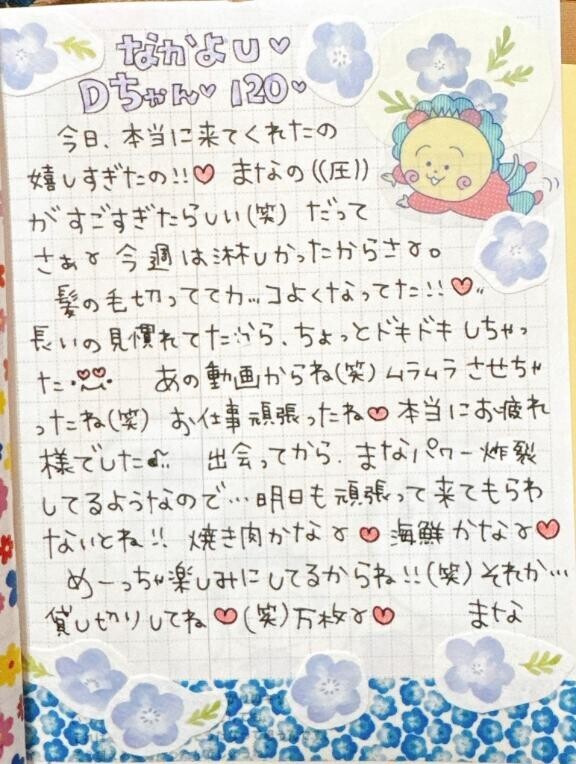 なかよし♡
Dちゃん♡120♡
今日、本当に来てくれたの
嬉しすぎたの!!♡ まなの((圧))
がすごすぎたらしい(笑) だって
さぁ〜 今週は淋しかったからさ〜。
髪の毛切っててカッコよくなってた!!♡
長いの見慣れてたから、ちょっとドキドキしちゃっ
た あの動画からね(笑)ムラムラさせちゃ
ったね(笑) お仕事頑張ったね♡ 本当にお疲れ
様でした♪ 出会ってから、まなパワー炸裂
してるようなので…明日も頑張って来てもらわ
ないとね!! 焼き肉かな〜♡ 海鮮かな〜♡
めーっちゃ楽しみにしてるからね!!(笑)それか…
貸し切りしてね♡(笑)万枚〜♡ まな